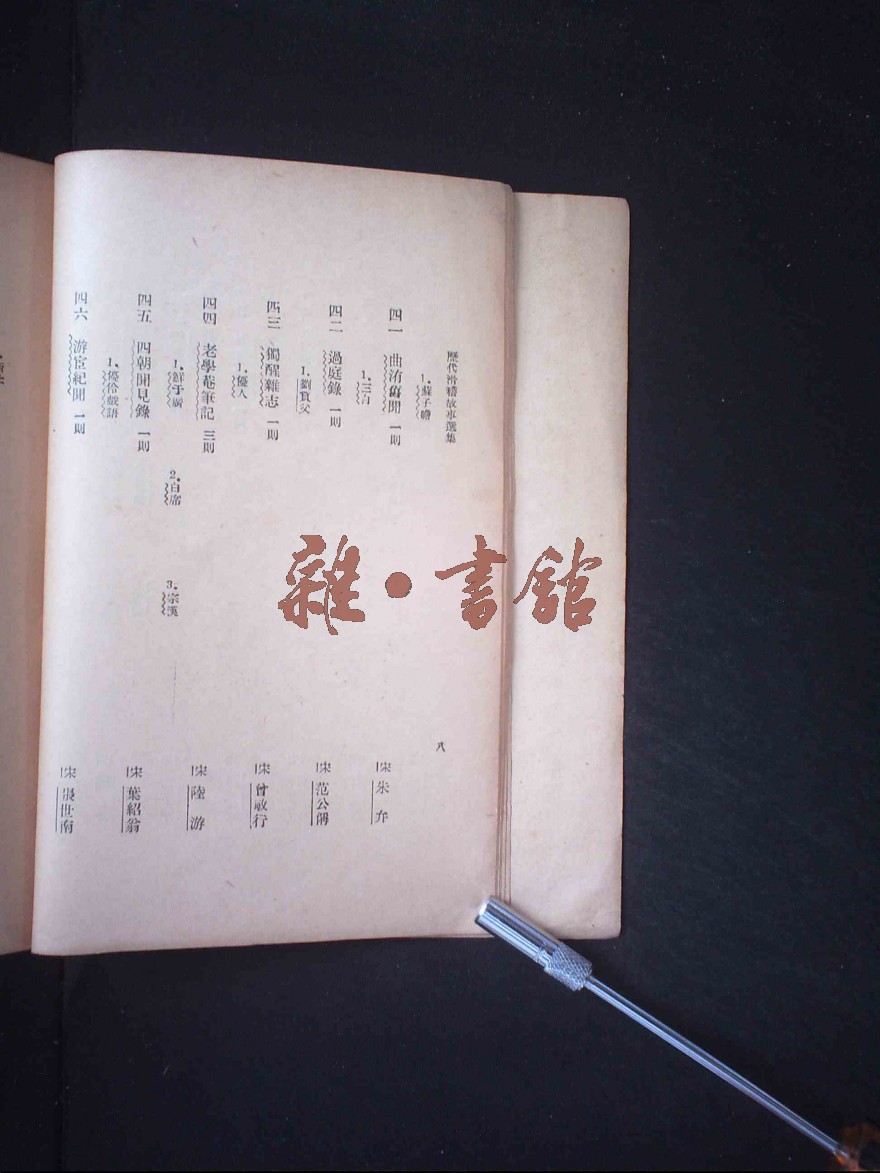 歷代滑稽故事選集
八
1.蘇子瞻
四一 曲洧舊聞 一則
宋 朱弁
1.三白
四二 過庭錄 一則
宋 范公偁
1.劉貢父
四三 獨醒雜志 一則
宋 曾敏行
1.優人
四四 老學菴筆記 三則
宋 陸游
1.鮮于廣 2.白席 3.宗漢
四五 四朝聞見錄 一則
宋 葉紹翁
1.優伶戲語
四六 游宦紀聞 一則
宋 張世南
雜·書館